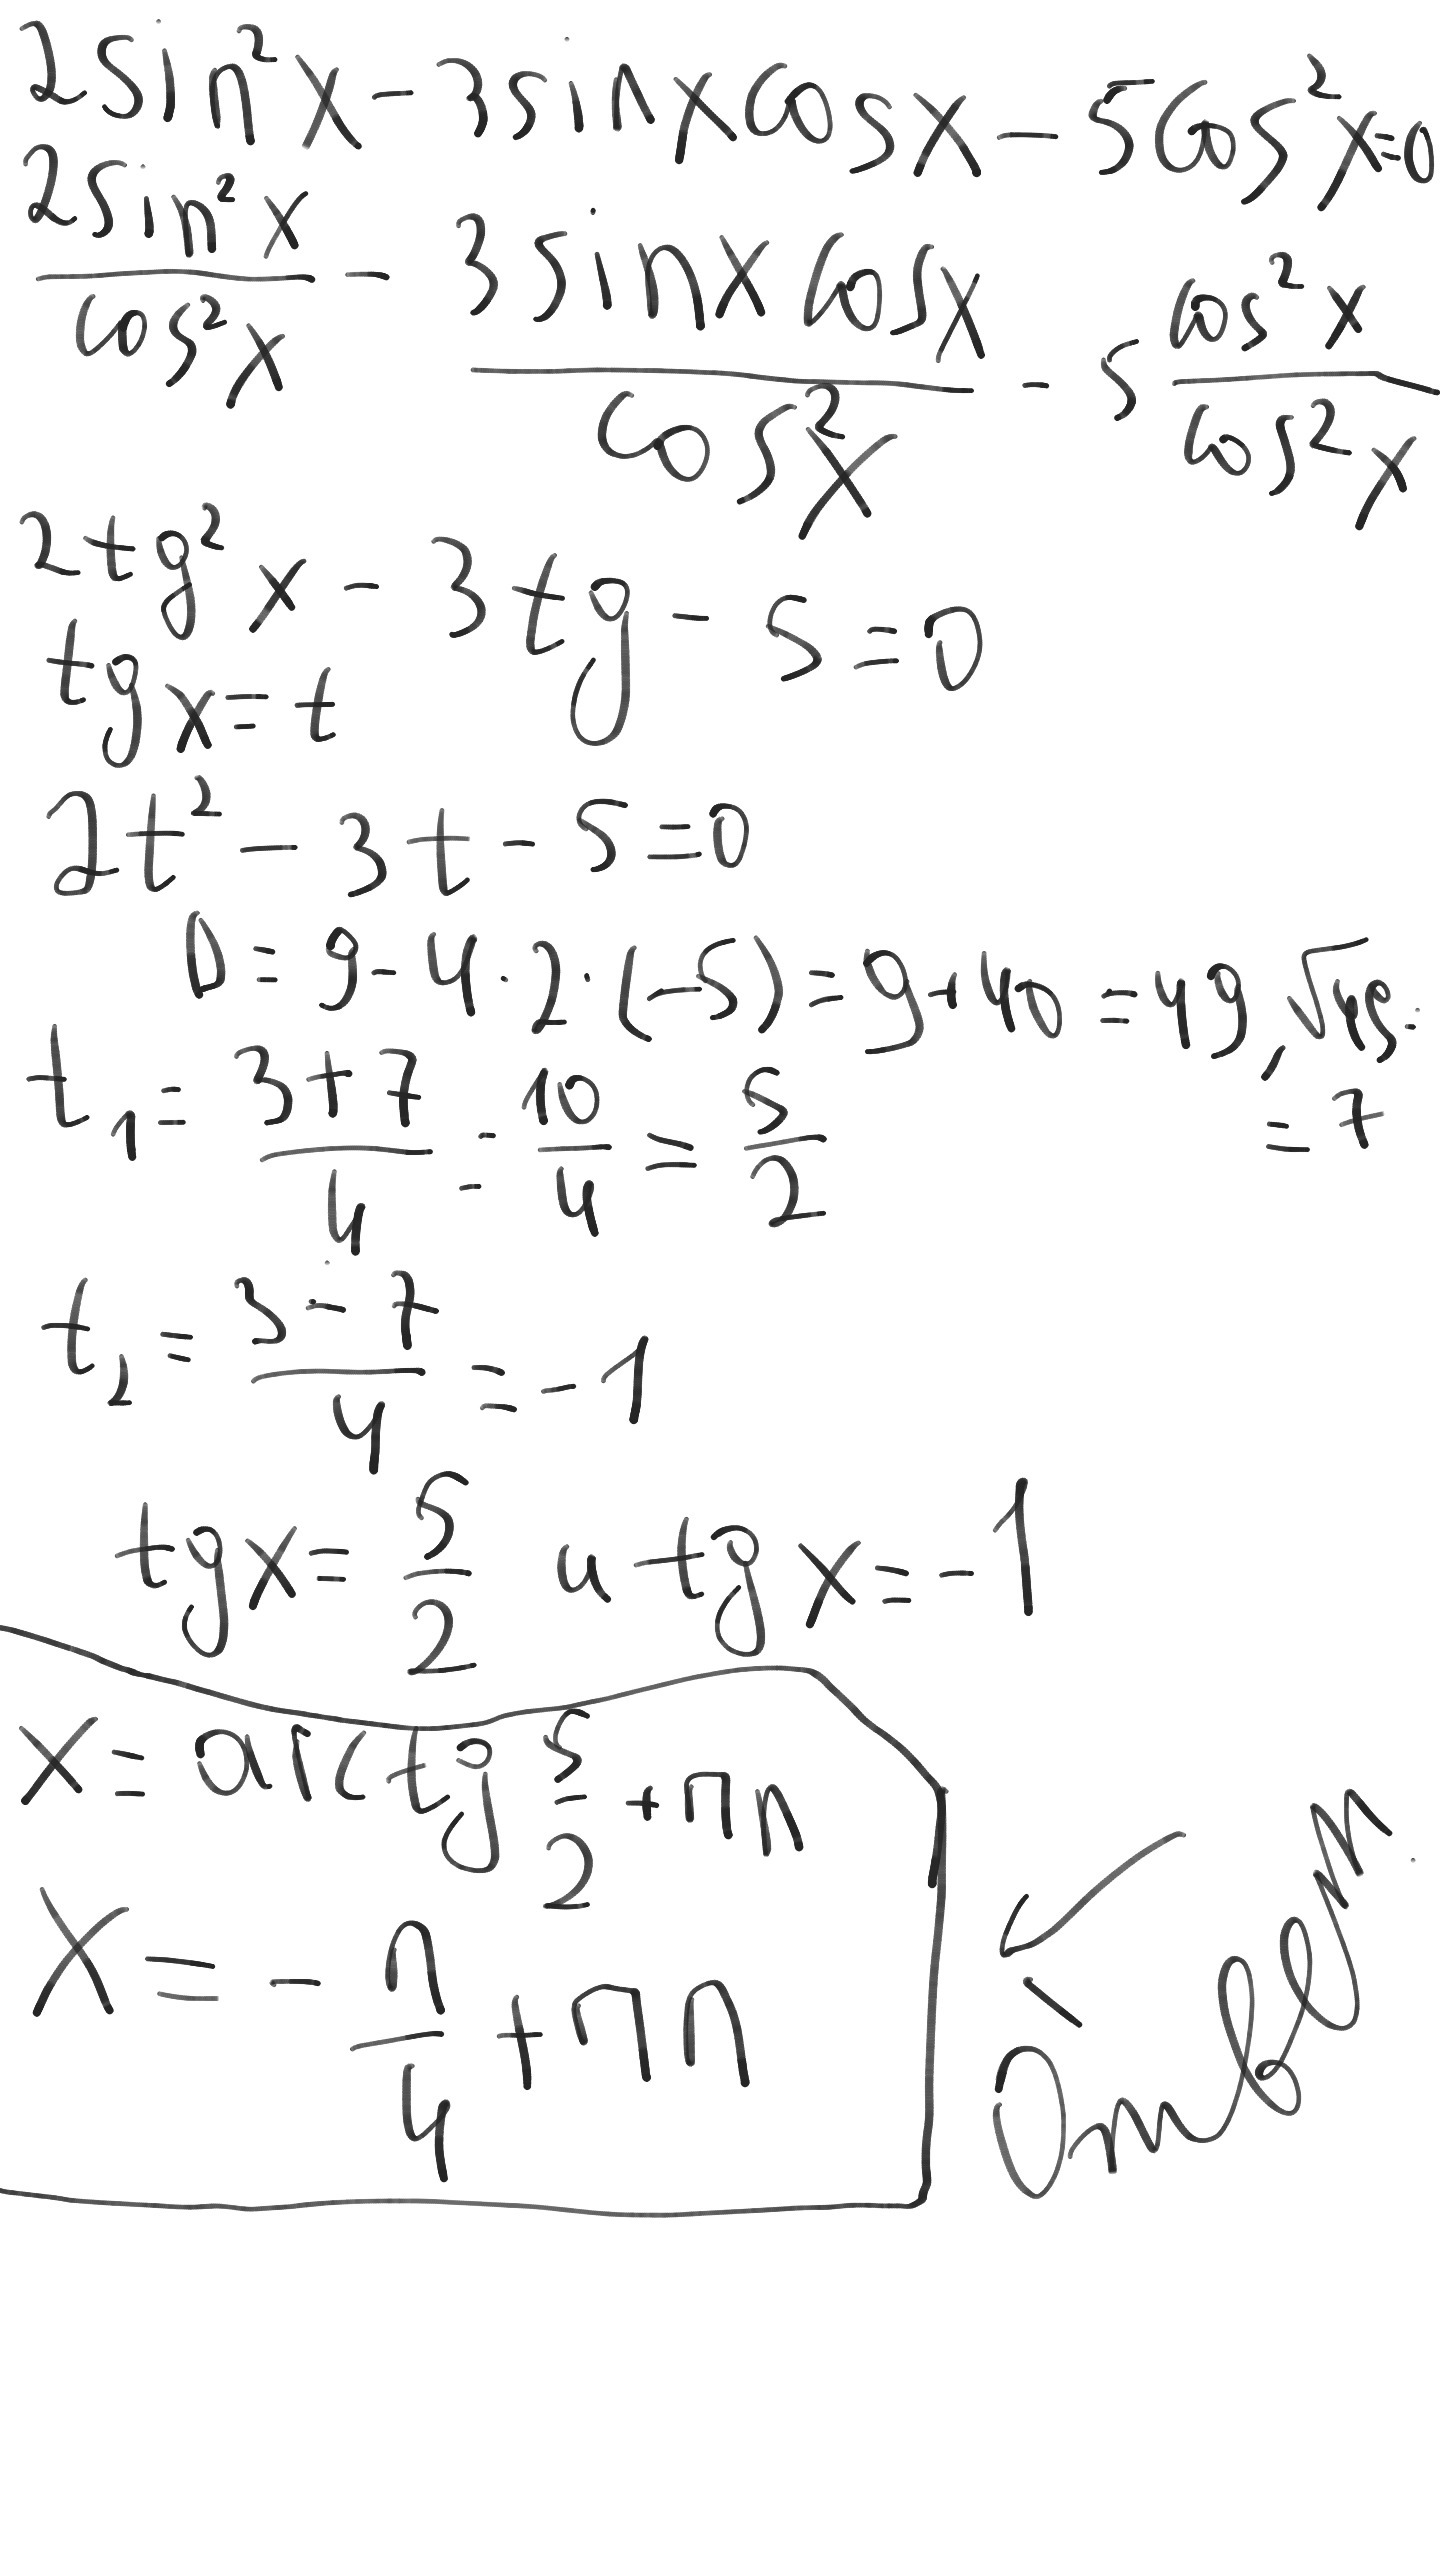 2sin²x - 3sinxcosx - 5cos²x=0
2sin²x/cos²x - 3sinxcosx/cos²x - 5 cos²x/cos²x
2tg²x - 3tg - 5 = 0
tgx = t
2t² - 3t - 5 = 0
D = 9 - 4·2·(-5) = 9+40 = 49, √49 =
= 7
t₁ = (3+7)/4 = 10/4 = 5/2
t₂ = (3-7)/4 = -1
tgx = 5/2 и tgx = -1
x = arctg 5/2 + πn
x = -π/4 + πn
Ответ